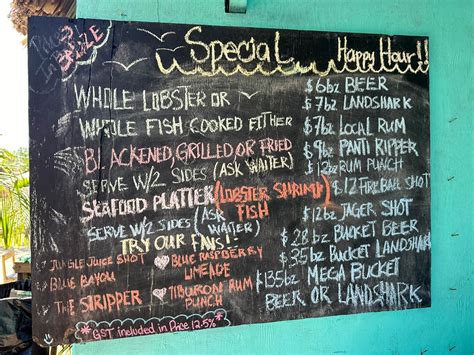 Prices
In
BELIZE
Special
Happy Hour!!
WHOLE LOBSTER OR
WHOLE FISH COOKED EITHER
BLACKENED, GRILLED OR FRIED
SERVE W/2 SIDES (ASK WAITER)
SEAFOOD PLATTER (LOBSTER SHRIMP
FISH)
SERVE W/2 SIDES (ASK
WAITER)
TRY OUR FANS!
JUNGLE JUICE SHOT
BLUE BAYOU
THE STRIPPER
BLUE RASPBERRY
LIMEADE
TIBURON RUM
PUNCH
*GST included in Price 12.5%*
$6bz BEER
$7bz LANDSHARK
$7bz LOCAL RUM
$9bz PANTI RIPPER
$12bz RUM PUNCH
$12 FIREBALL SHOT
$12bz JAGER SHOT
$28bz BUCKET BEER
$35bz BUCKET LANDSHARK
$135bz MEGA BUCKET
BEER OR LANDSHARK